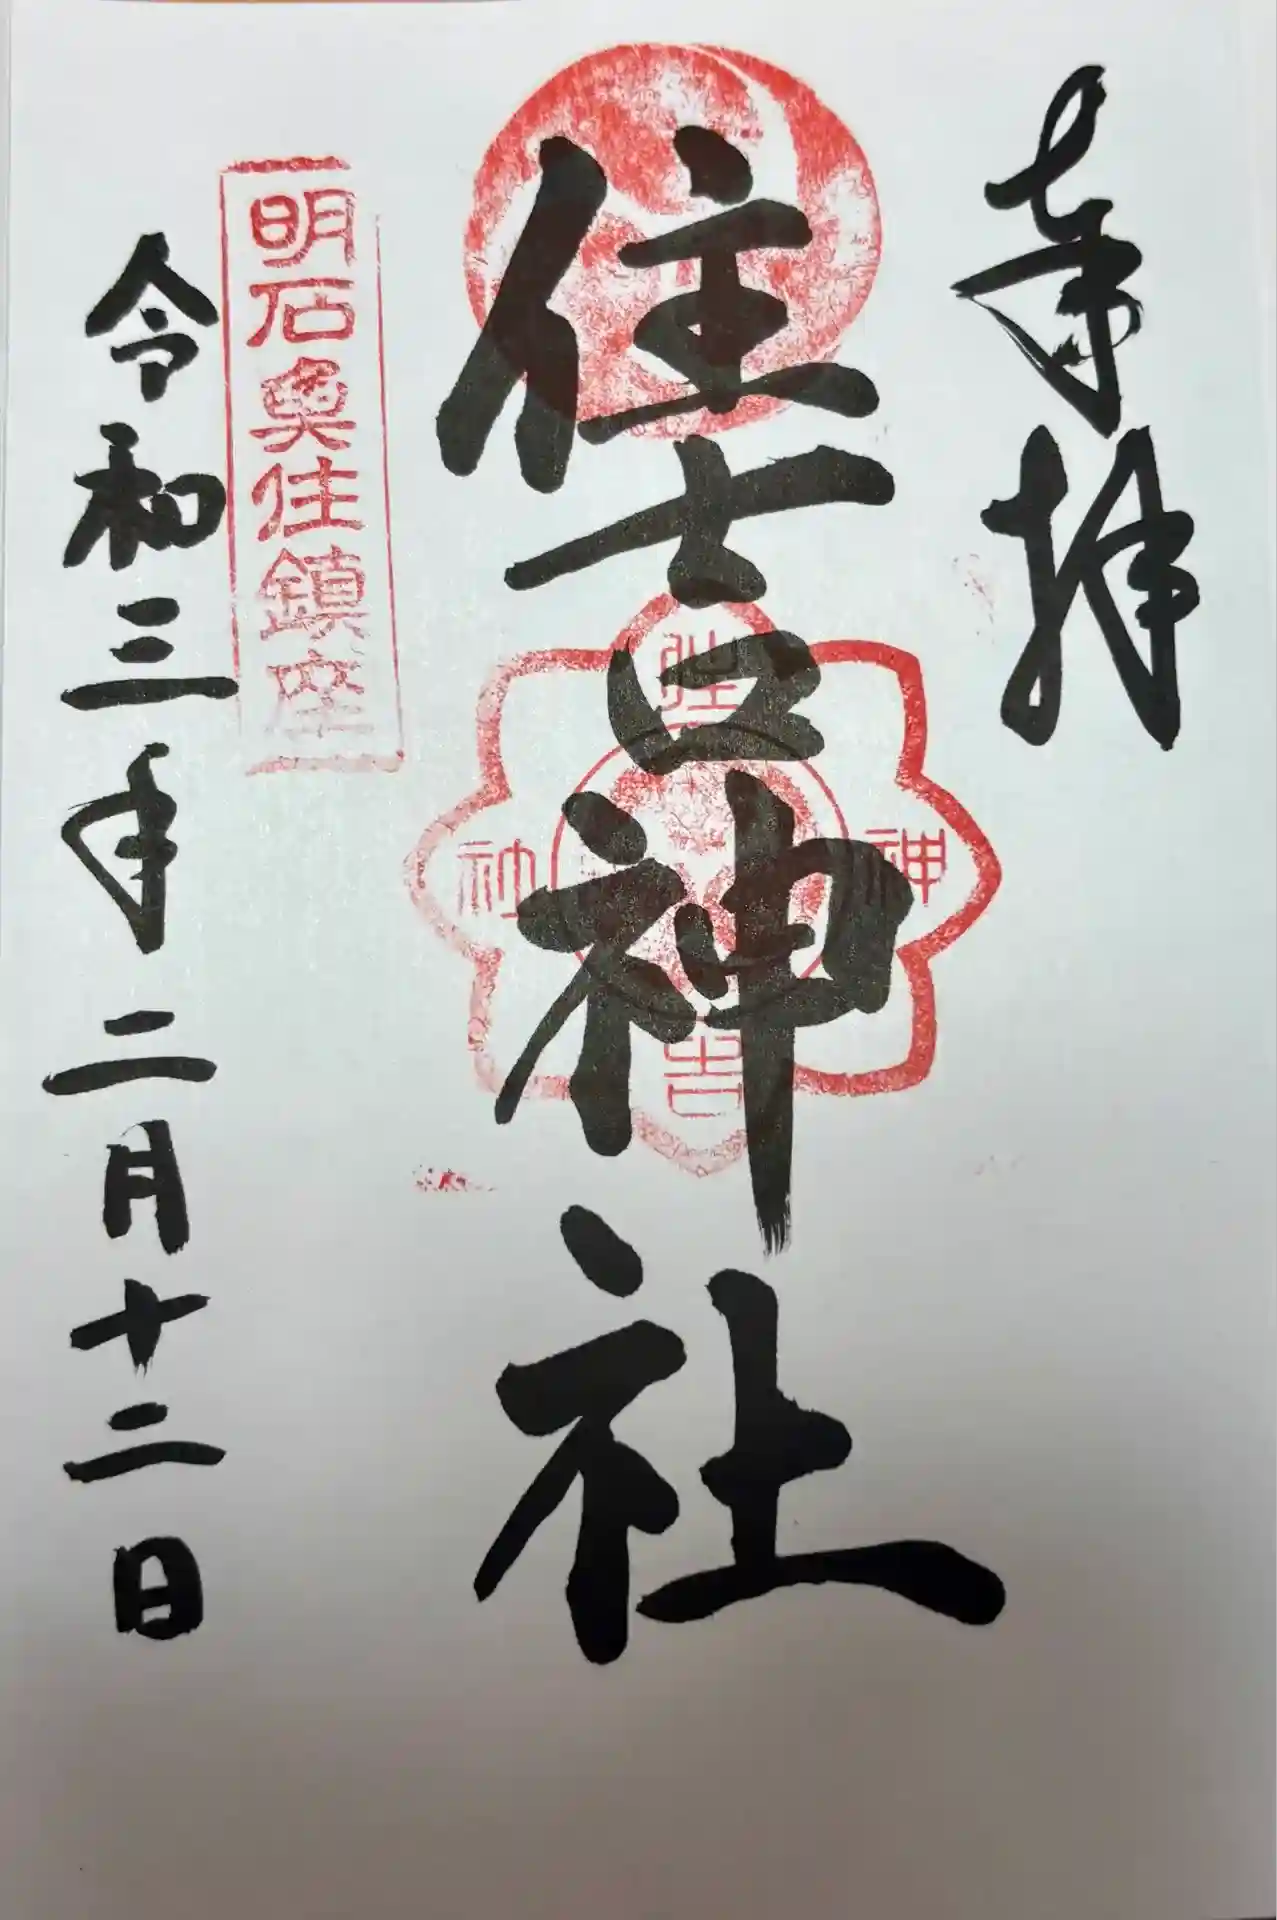 奉拝
住吉神社
住
神
社
吉
明石魚住鎮座
令和三年二月十二日